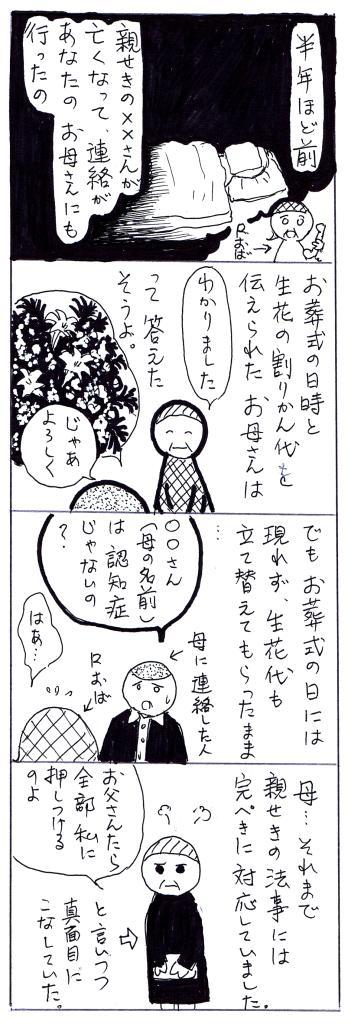 半年ほど前
親せきの××さんが
亡くなって、連絡が
あなたの お母さんにも
行ったの
Rおば
お葬式の日時と
生花の割りかん代を
伝えられた お母さんは
わかりました
って 答えた
そうよ。
じゃあ
よろしく
でも お葬式の日には
現れず、生花代も
立て替えてもらったまま
…
○○さん
(母の名前)
は 認知症
じゃないの
?
母に連絡した人
Rおば
はぁ…
母…それまで
親せきの法事には
完ぺきに 対応していました。
お父さんたら
全部 私に
押しつける
のよ
と言いつつ
真面目に
こなしていた。